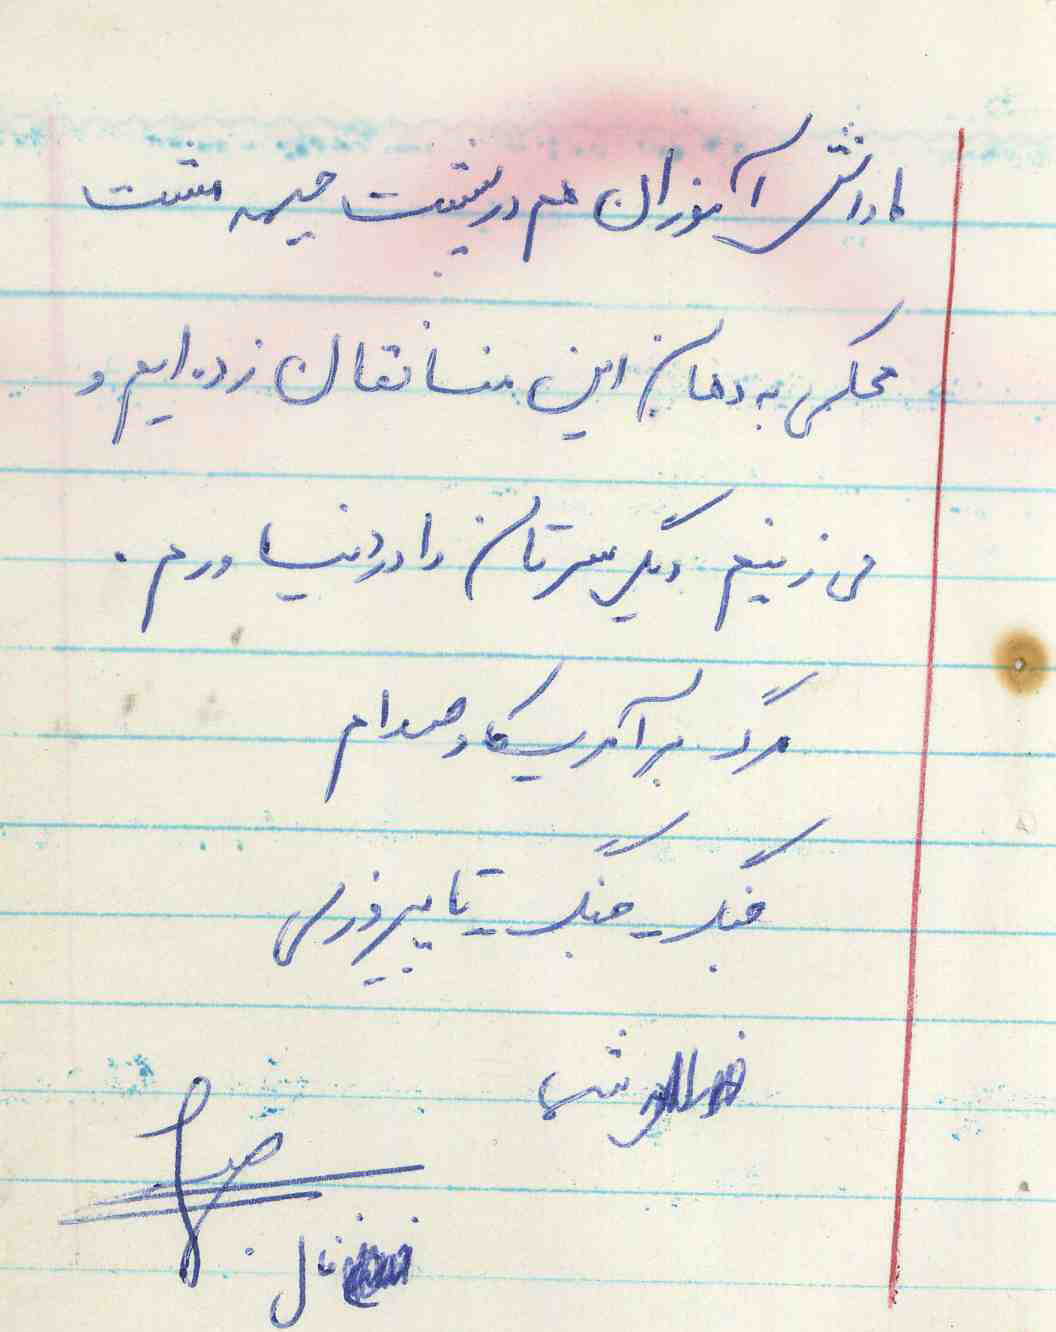 ما دانش آموزان هم در پشت جبهه مشت
محکمی به دهان این منافقان زده ایم و
می زنیم دیگر سرتان را درد نیاورم.
مرگ بر آمریکا و صدام
جنگ جنگ تا پیروزی